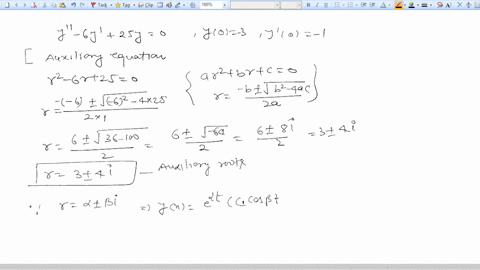 y'' - 6y' + 25y = 0 , y(0) = -3 , y'(0) = -1
[ Auxiliary equation
r² - 6r + 25 = 0 { ar² + br + c = 0
r = -(-6) ± √(-6)² - 4×25 / 2×1 r = -b ± √b² - 4ac / 2a }
r = 6 ± √36-100 / 2 = 6 ± √-64 / 2 = 6 ± 8i / 2 = 3 ± 4i
r = 3 ± 4i — Auxiliary roots
∵ r = α ± βi ⇒ y(x) = e^αt (C₁ cos βt